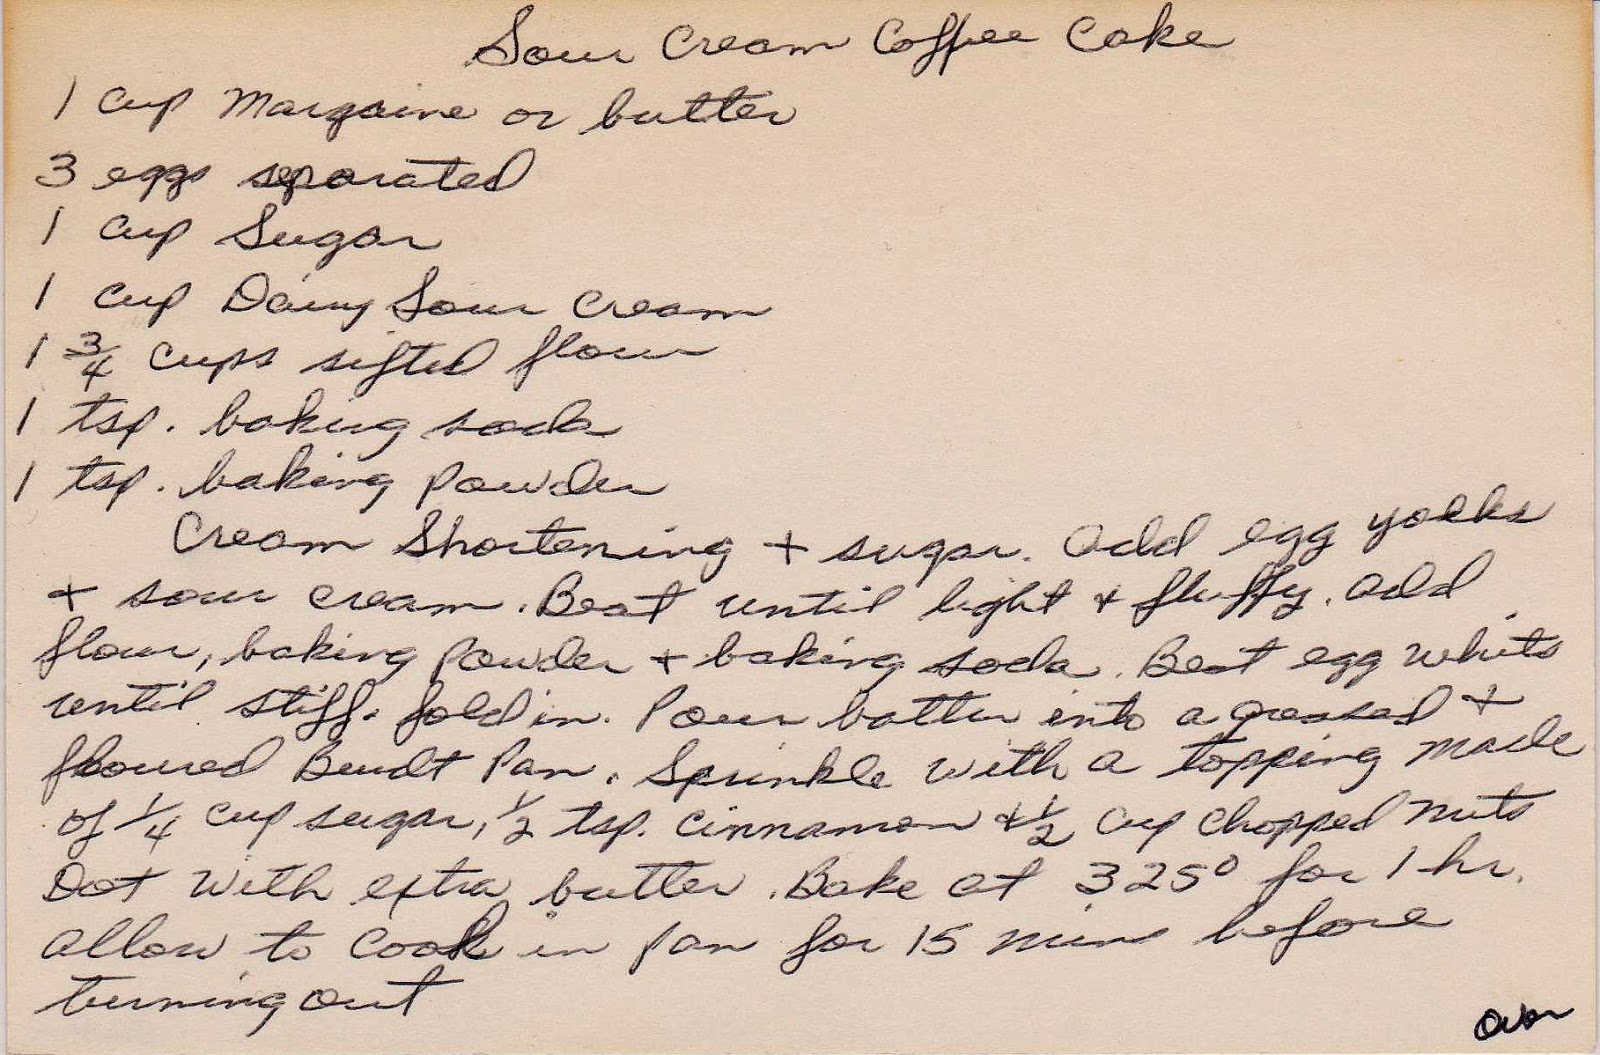 Sour Cream Coffee Cake
1 cup Margaine or butter
3 eggs separated
1 cup Sugar
1 cup Dairy Sour Cream
1 3/4 cups sifted flour
1 tsp. baking soda
1 tsp. baking powder
Cream Shortening + sugar. Add egg yolks
+ sour cream. Beat until light + fluffy. Add
flour, baking powder + baking soda. Beat egg whits
until stiff. fold in. Pour batter into a greased +
floured Bundt Pan. Sprinkle with a topping made
of 1/4 cup sugar, 1/2 tsp. cinnamon + 1/2 cup chopped nuts
Dot with extra butter. Bake at 325° for 1 hr.
allow to cool in pan for 15 mins before
turning out
Over